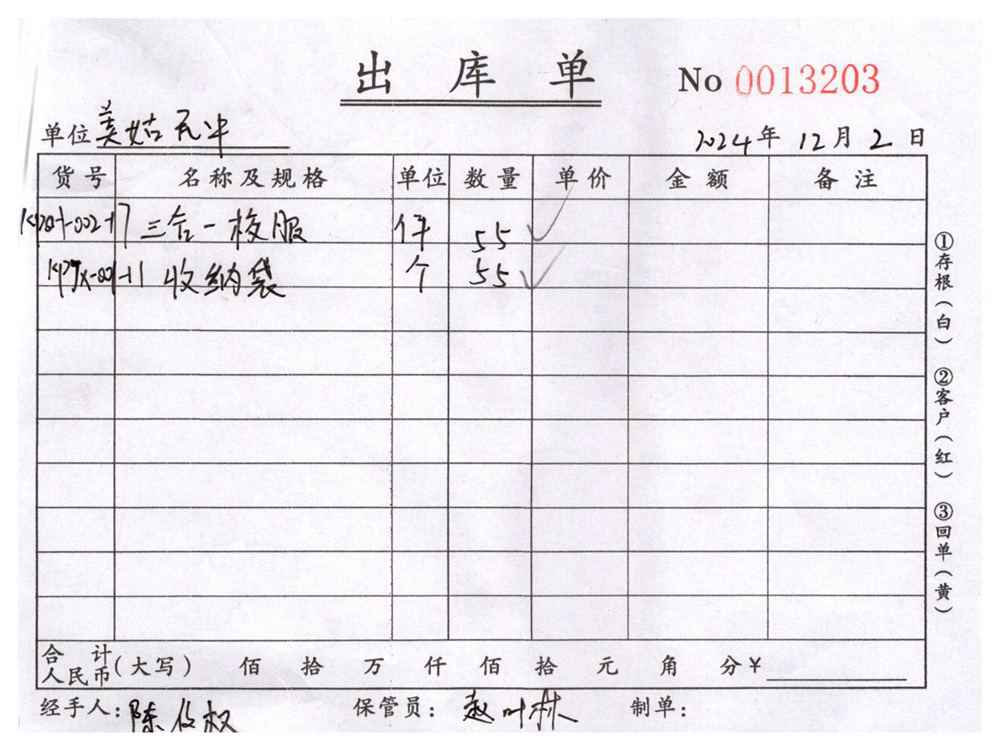 出库单 No 0013203
单位 美姑瓦斗 2024年 12月 2日
货号 名称及规格 单位 数量 单价 金额 备注
三合一校服 件 55
收纳袋 个 55
①存根(白) ②客户(红) ③回单(黄)
合计人民币(大写) 佰 拾 万 仟 佰 拾 元 角 分¥
经手人: 陈 权 保管员: 赵叶林 制单: